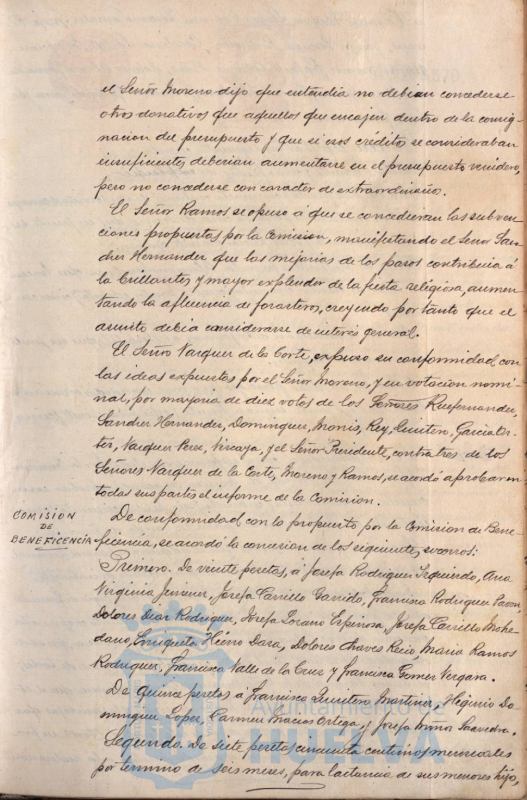 el Señor Moreno dijo que entendia no debian concederse
otros donativos que aquellos que encajen dentro de la consig-
nacion del presupuesto y que si esos créditos se consideraban
insuficientes deberian aumentarse en el presupuesto venidero,
pero no concederse con caracter de extraordinario.
El Señor Ramos se opuso á que se concedieran las subven-
ciones propuestas por la Comision, manifestando el Señor San-
chez Hernandez que las mejorias de los pasos contribuia á
la brillantez y mayor explendor de la fiesta religiosa, aumen-
tando la afluencia de forasteros, creyendo por tanto que el
asunto debia considerarse de interés general.
El Señor Vazquez de la Corte, expuso su conformidad con
las ideas expuestas por el Señor Moreno, y en votacion nomi-
nal, por mayoria de diez votos de los Señores Ruifernandez,
Sanchez Hernandez, Dominguez, Monis, Rey, Quintero, Garcia Or-
tiz, Vazquez Perez, Vizcaya, y el Señor Presidente, contra tres de los
Señores Vazquez de la Corte, Moreno y Ramos, se acordó aprobar en
todas sus partes el informe de la Comision.
COMISION
DE
BENEFICENCIA
De conformidad con lo propuesto por la Comision de Bene-
ficencia, se acordó la concesion de los siguientes socorros:
Primero. De veinte pesetas, á Josefa Rodriguez Izquierdo, Ana
Virginia Jimenez, Josefa Carrillo Garrido, Francisca Rodriguez Pavon,
Dolores Diaz Rodriguez, Josefa Lozano Espinosa, Josefa Carrillo Mohe-
dano, Enriqueta Daza, Dolores Chaves Recio, Maria Ramos
Rodriguez, Francisca Valle de la Cruz y Francisca Gomez Vergara.
De quince pesetas á Francisca Quintero Martinez, Higinio Do-
minguez Lopez, Carmen Macias Ortega, y Josefa Miño Saavedra.
Segundo. De siete pesetas cincuenta centimos mensuales
por termino de seis meses, para lactancia de sus menores hijos,
Ayuntamiento de
HUELVA